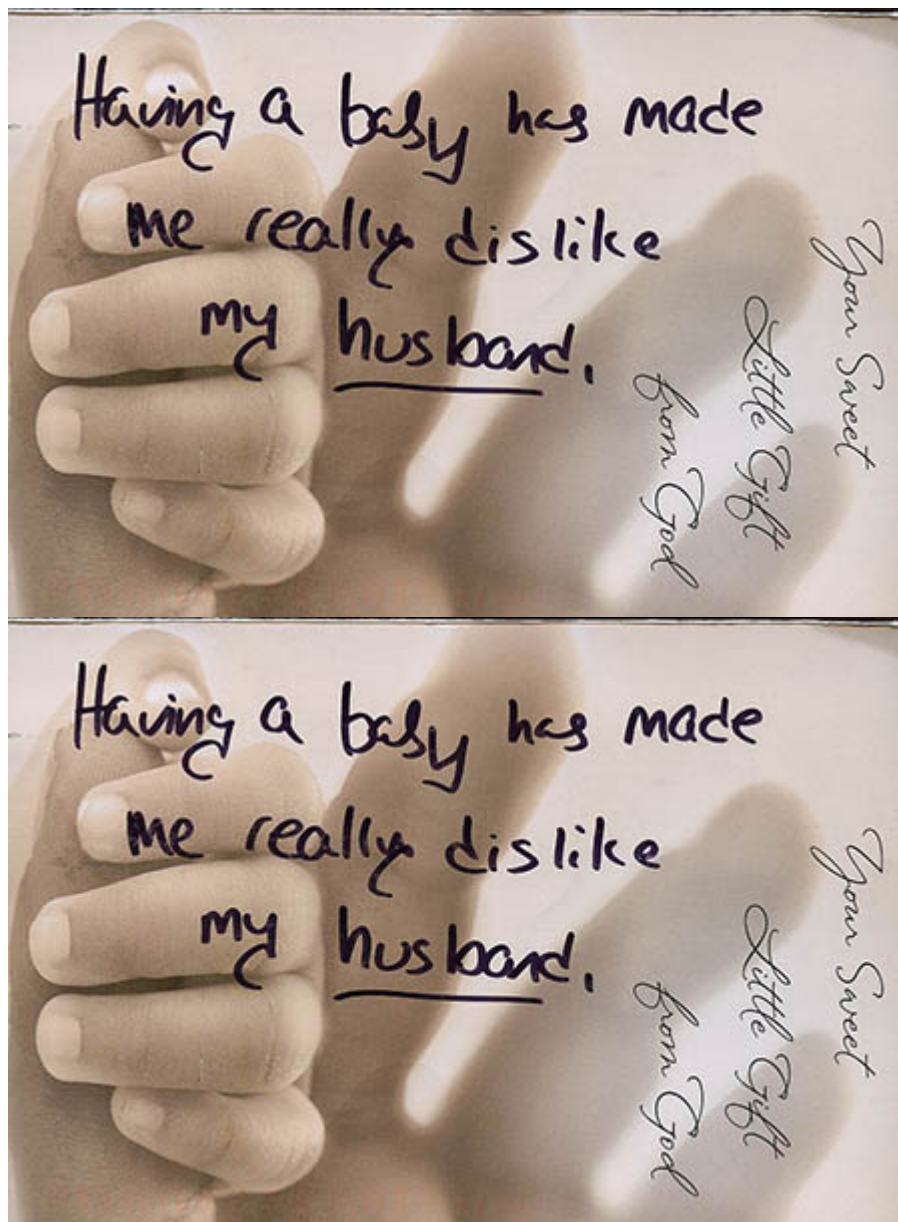 Having a baby has made
me really dislike
my husband.
Your Sweet
Little Gift
from God
Having a baby has made
me really dislike
my husband.
Your Sweet
Little Gift
from God